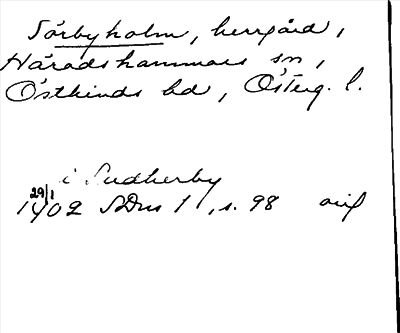 Sörbyholm, herrgård,
Häradshammars sn,
Östkinds hd, Österg. l.
i Sudherby
29/1
1402 SDns 1, s. 98 orig